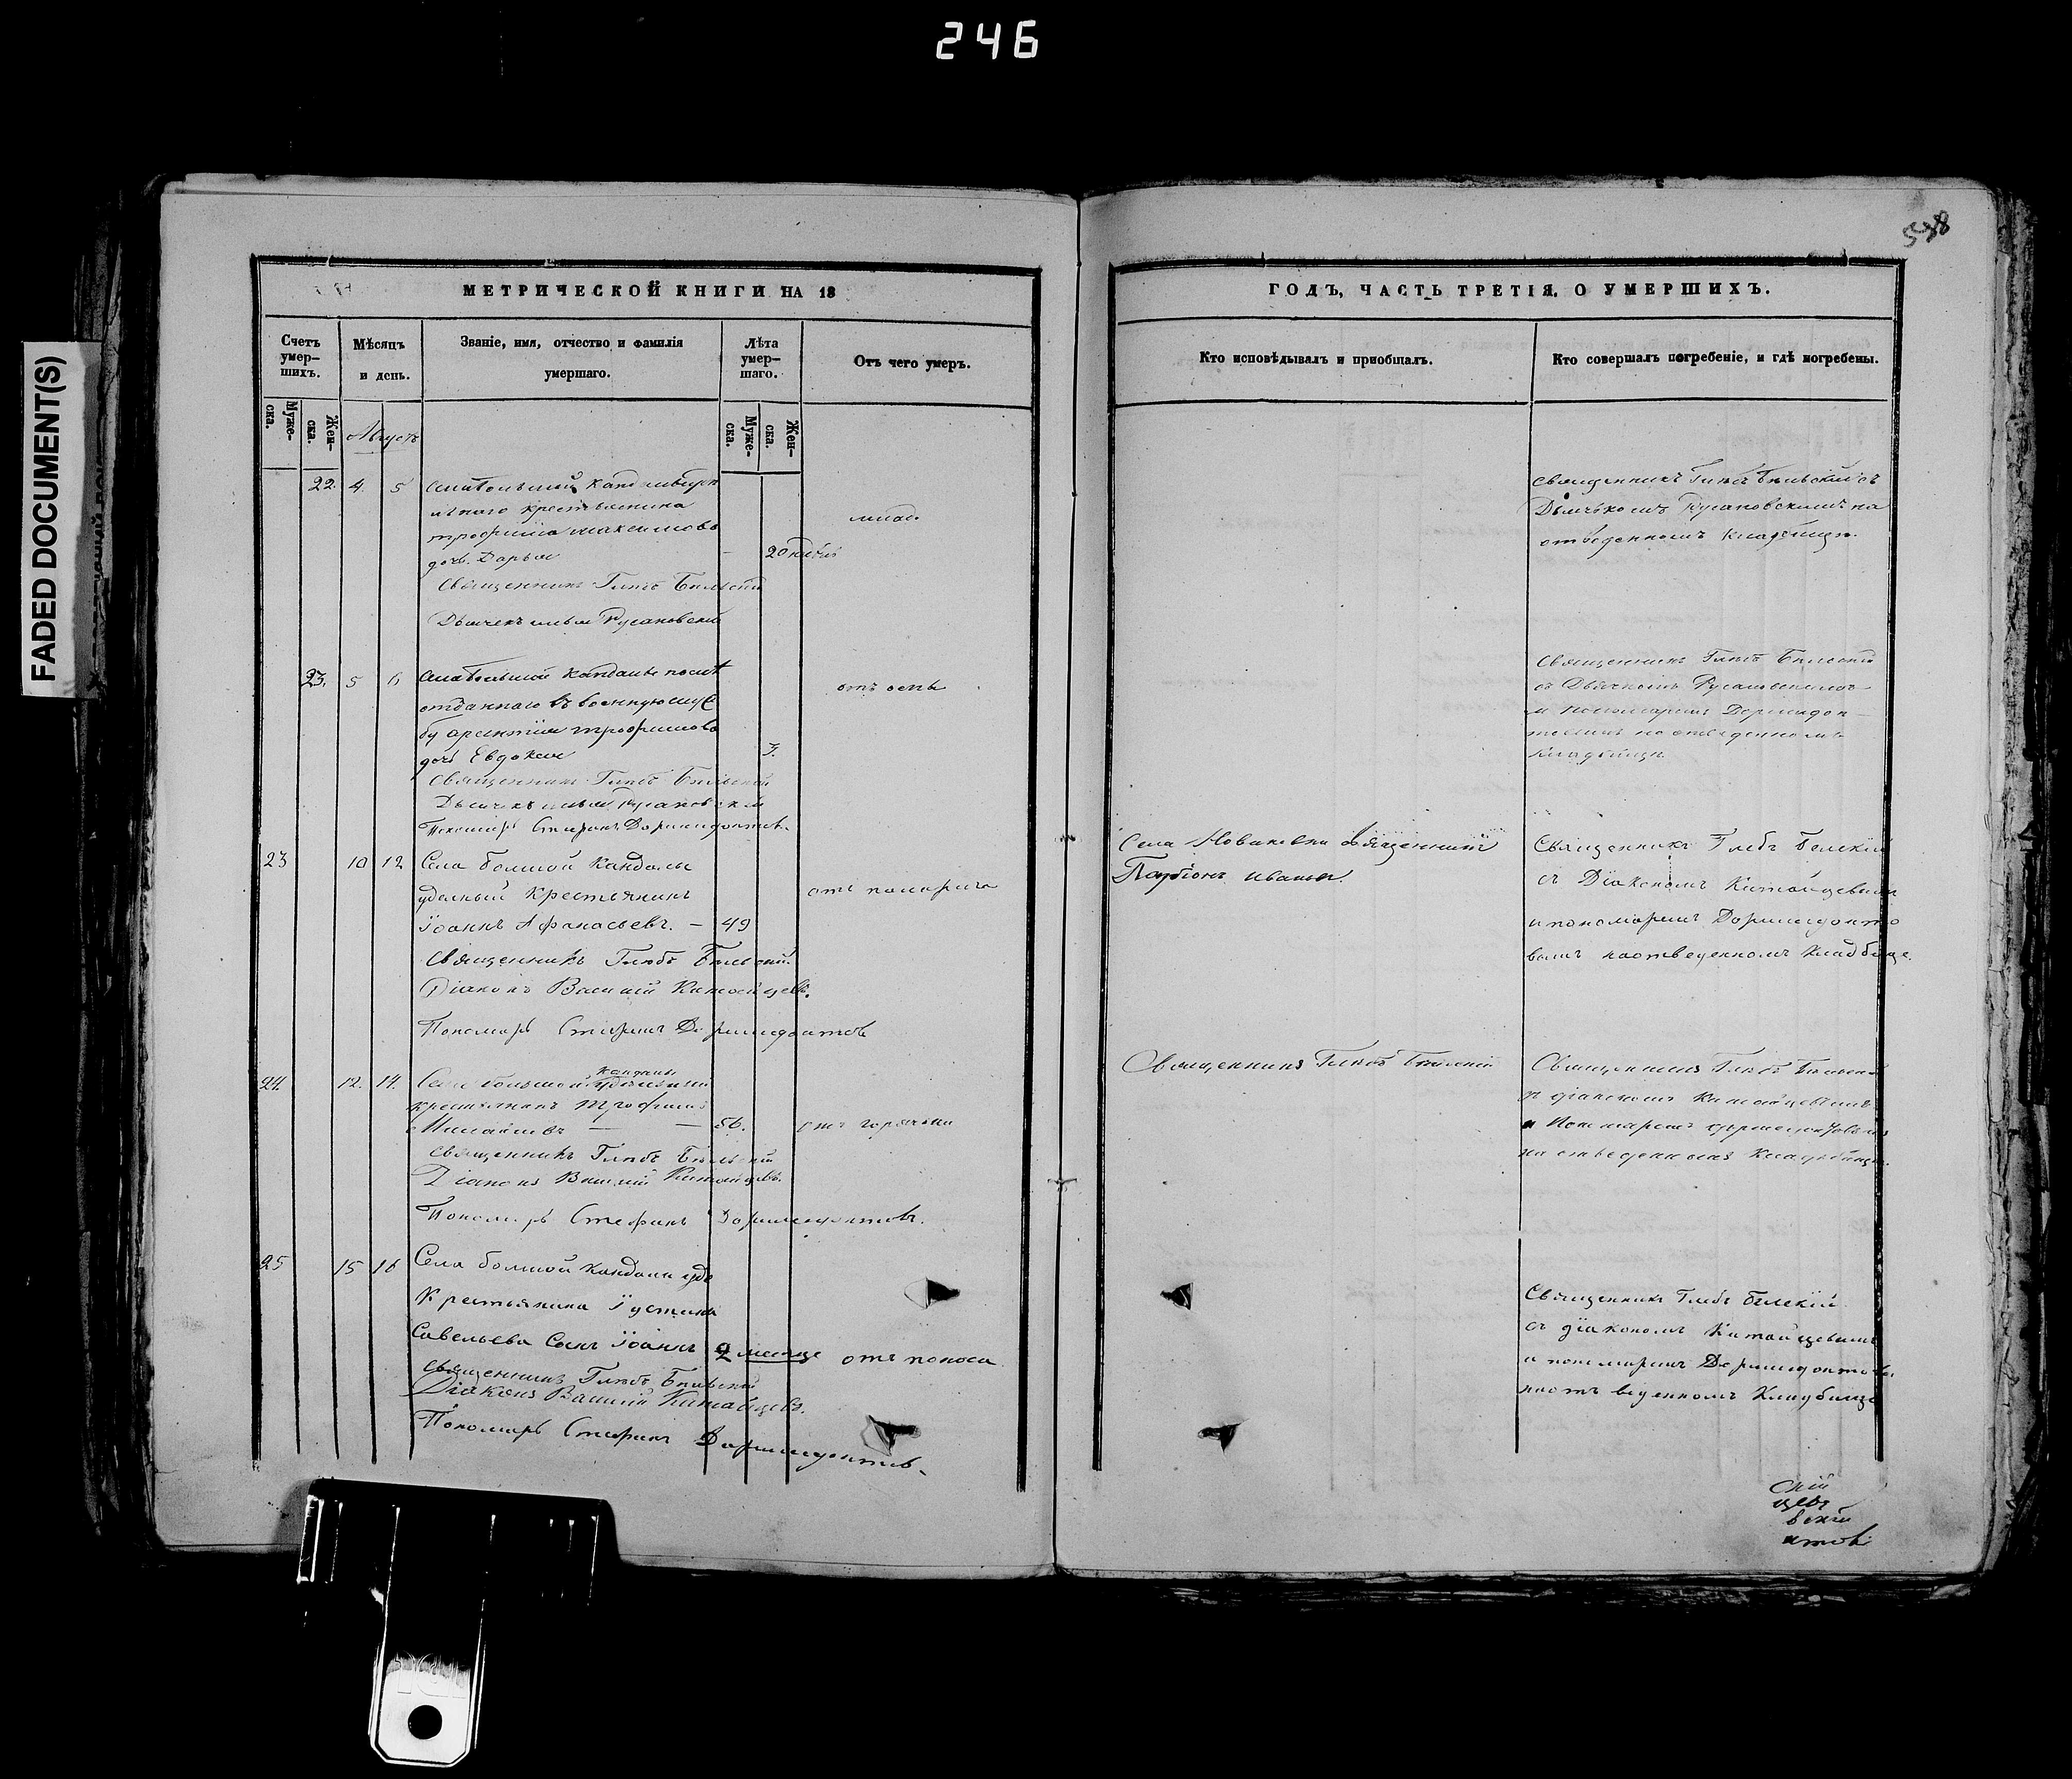 246
FADED DOCUMENT(S)
538
МЕТРИЧЕСКОЙ КНИГИ НА 18
Счетъ умер–шихъ.
Мѣсяцъ и день.
Званіе, имя, отчество и фамилія умершаго.
Лѣта умер–шаго.
Отъ чего умеръ.
Муже-ска.
Жен-ска.
Августъ
Муже-ска.
Жен-ска.
22. 4. 5
крестьянина
трофима максимова
доч. Дарья – 20
Священникъ Глѣбъ Бѣльскій
Дьячекъ илья Русановскій
23. 5 6
отданнаго въ военную служ
бу арсентія трофимова
доч Евдокия 3.
отъ оспы
Священникъ Глѣбъ Бѣльской
Дьячекъ илья Русановскій
Пономарь Стефанъ Доримедонтовъ.
23 10 12 Села болшой Кандалы
удѣлный Крестьянинъ
Іоаннъ Афанасьевъ. – 49
Священникъ Глѣбъ Бѣльскій.
Діаконъ Василій Китайцевъ.
Пономарь Стефанъ Доримедонтовъ
24. 12. 14. Села большой Кандалы удѣльный
крестьянинъ Трофимъ
Михайловъ — — 56. отъ горячки
Священникъ Глѣбъ Бѣльскій
Діаконъ Василій Китайцевъ.
Пономарь Стефанъ Доримедонтовъ.
25 15 16 Села болшой Кандалы удѣ
Крестьянина Іустина
Савельева Сынъ Іоаннъ 2 месеце отъ поноса
священникъ Глѣбъ Бѣльской
Діаконъ Василій Китайцевъ.
Пономарь Стефанъ Доримедонтовъ.
ГОДЪ, ЧАСТЬ ТРЕТІЯ, О УМЕРШИХЪ.
Кто исповѣдывалъ и пріобщалъ.
Кто совершалъ погребеніе, и гдѣ погребены.
священникъ Глѣбъ Бѣльскій съ
Дьячкомъ Русановскимъ на
отведенномъ кладбищѣ.
Священникъ Глѣбъ Бѣльскій
съ Дьячкомъ Русановскимъ
и пономаремъ Доримедон–
товымъ на отведенномъ
кладбищѣ.
Села Новиковки священникъ
Священникъ Глебъ Белскій
съ Діакономъ Китайцевымъ
и пономаремъ Доримедонто
вымъ на отведенномъ Кладбище.
Священникъ Глѣбъ Бѣлскій
Священникъ Глѣбъ Бѣльской
съ діакономъ Китайцевымъ
и Пономаремъ Доримедонтовымъ
на отведенномъ Кладбищѣ.
Священникъ Глебъ белскій
съ діакономъ Китайцевымъ
и пономаремъ Доримедонтовы
наотъ веденномъ Кладбище
скій
цевъ
вскій
нтовъ